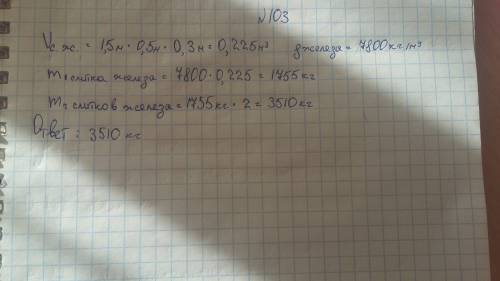 №103
Vс.ж. = 1,5м · 0,5м · 0,3м = 0,225м³ ρжелеза = 7800кг/м³
m₁ слитка железа = 7800 · 0,225 = 1755 кг
m₂ слитков железа = 1755 кг · 2 = 3510 кг
Ответ: 3510 кг